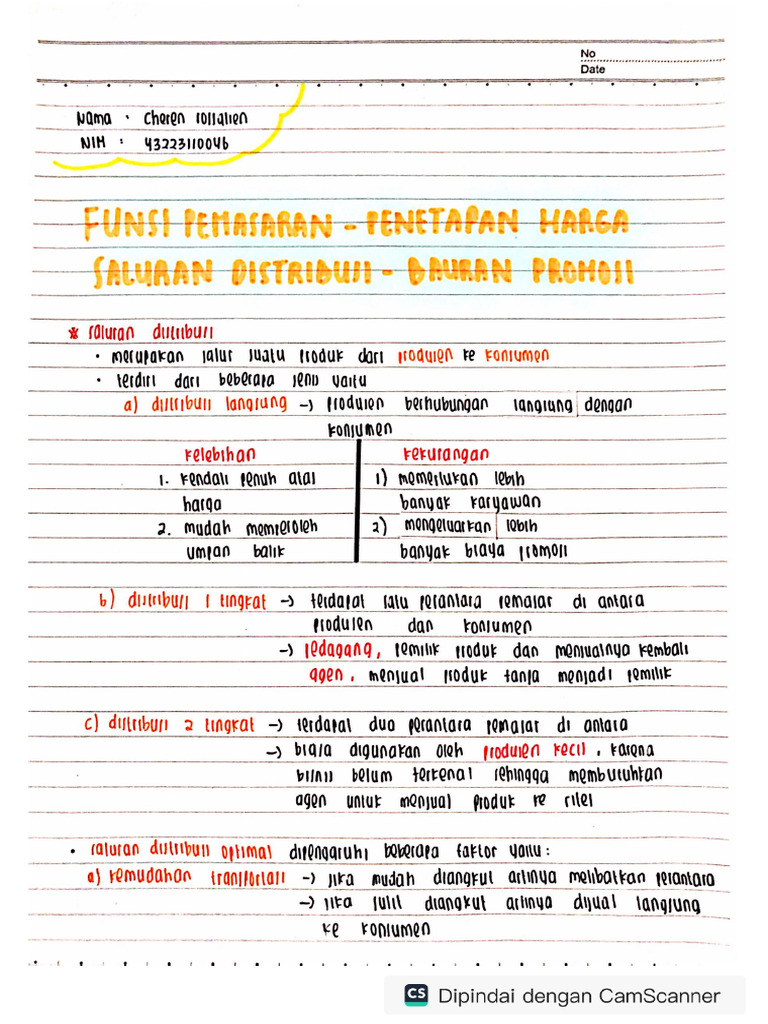 No
Date
Nama : Cheren rossalien
NIM : 43223110046
FUNSI PEMASARAN - PENETAPAN HARGA
SALURAN DISTRIBUSI - BAURAN PROMOSI
* saluran distribusi
• merupakan jalur suatu produk dari produsen ke konsumen
• terdiri dari beberapa jenis yaitu
a) distribusi langsung -> produsen berhubungan langsung dengan
konsumen
kelebihan
1. kendali penuh atas
harga
2. mudah memperoleh
umpan balik
kekurangan
1) memerlukan lebih
banyak karyawan
2) mengeluarkan lebih
banyak biaya promosi
b) distribusi 1 tingkat -> terdapat satu perantara pemasar di antara
produsen dan konsumen
-> pedagang, pemilik produk dan menjualnya kembali
agen, menjual produk tanpa menjadi pemilik
c) distribusi 2 tingkat -> terdapat dua perantara pemasar di antara
-> biasa digunakan oleh produsen kecil, karena
bisnis belum terkenal sehingga membutuhkan
agen untuk menjual produk ke ritel
• saluran distribusi optimal dipengaruhi beberapa faktor yaitu :
a) kemudahan transportasi -> jika mudah diangkut artinya melibatkan perantara
-> jika sulit diangkut artinya dijual langsung
ke konsumen
CS Dipindai dengan CamScanner